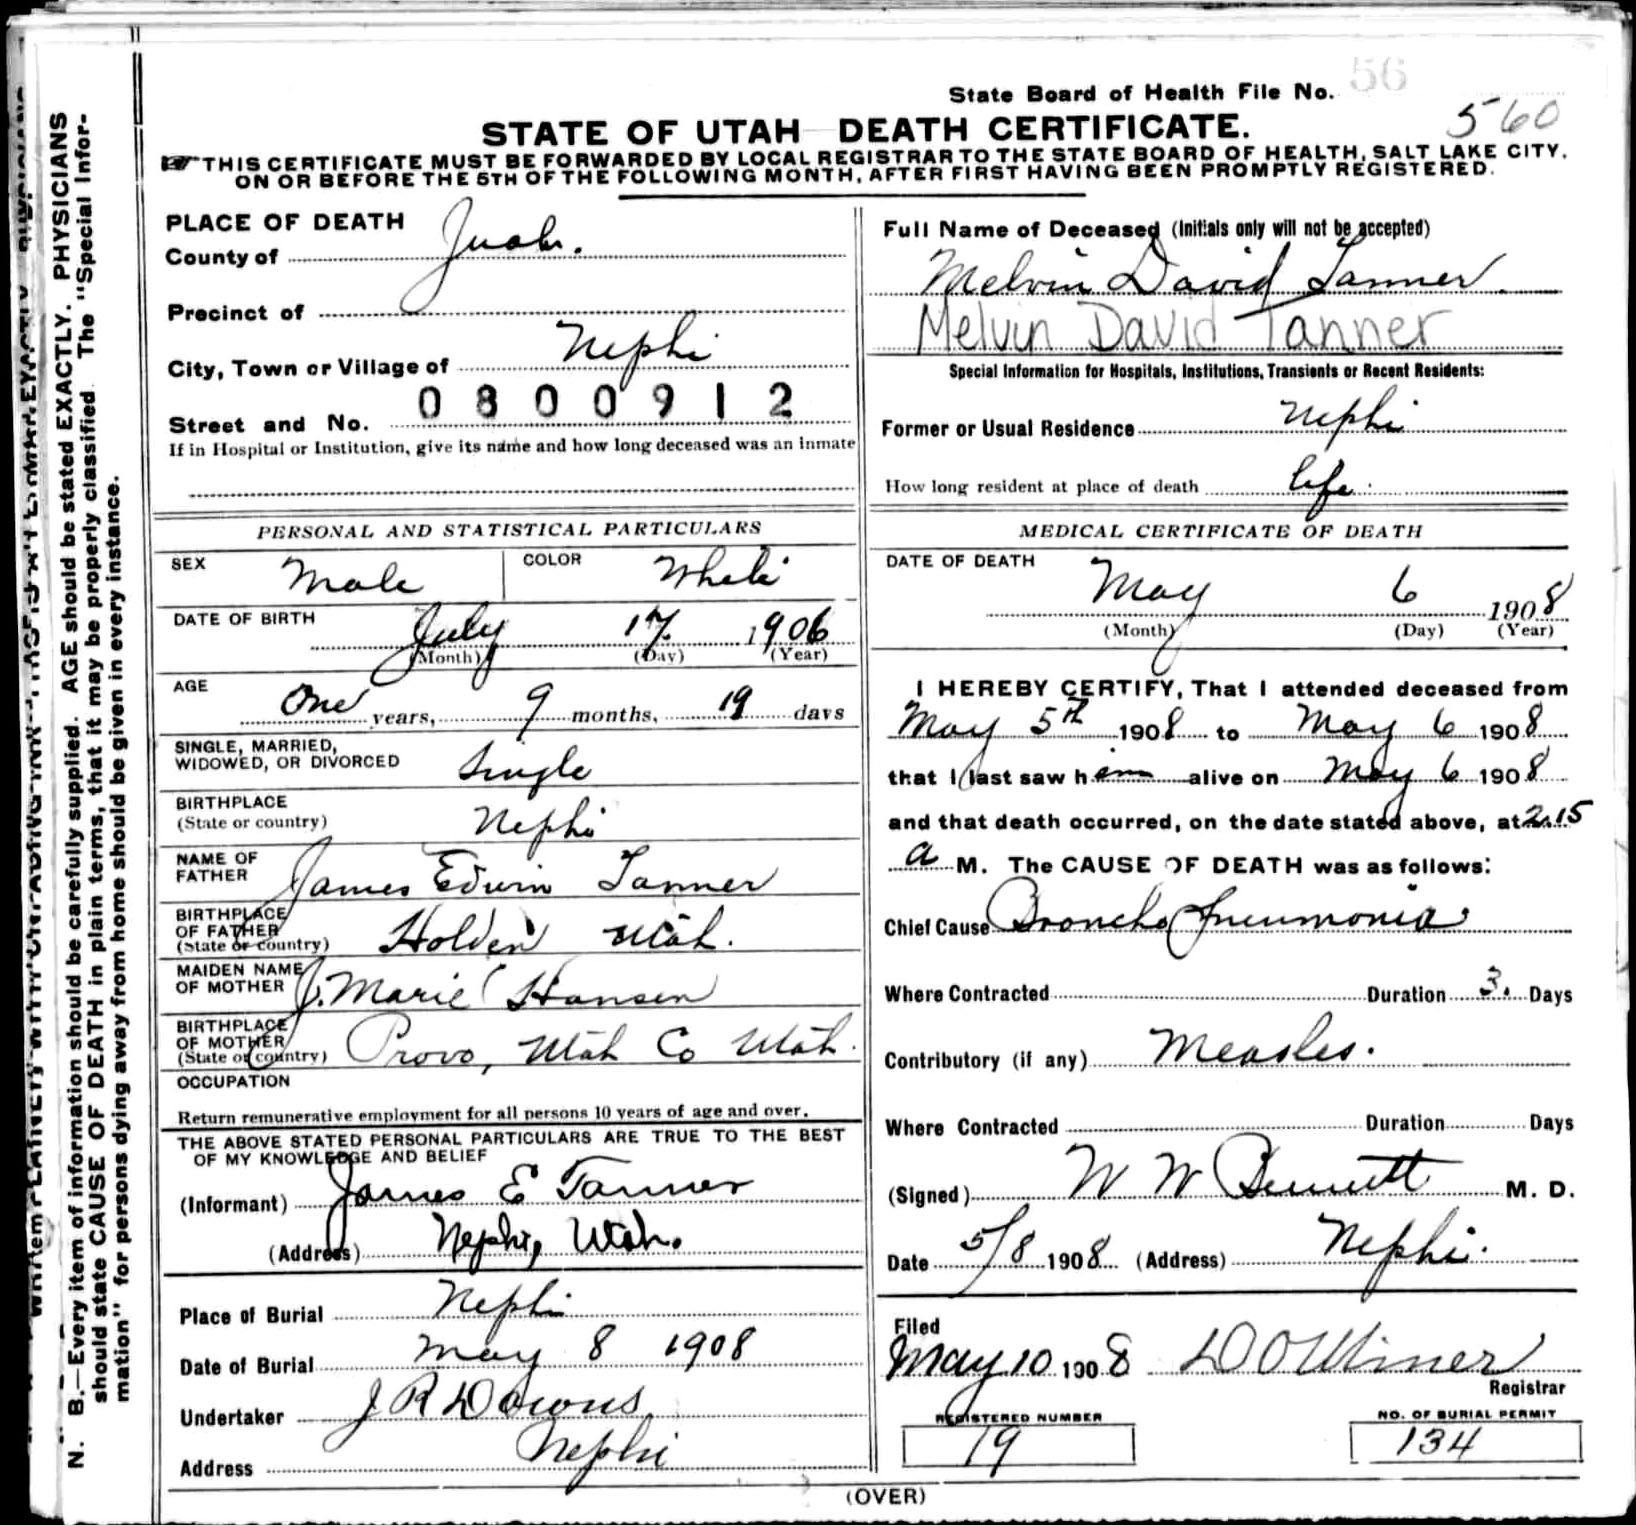 State Board of Health File No. 56
560
STATE OF UTAH DEATH CERTIFICATE.
THIS CERTIFICATE MUST BE FORWARDED BY LOCAL REGISTRAR TO THE STATE BOARD OF HEALTH, SALT LAKE CITY,
ON OR BEFORE THE 5TH OF THE FOLLOWING MONTH, AFTER FIRST HAVING BEEN PROMPTLY REGISTERED.
N. B.—Every item of information should be carefully supplied. AGE should be stated EXACTLY. PHYSICIANS
should state CAUSE OF DEATH in plain terms, that it may be properly classified. The "Special Infor-
mation" for persons dying away from home should be given in every instance.
PLACE OF DEATH
County of Juab.
Precinct of
City, Town or Village of Nephi
0800912
Street and No.
If in Hospital or Institution, give its name and how long deceased was an inmate
PERSONAL AND STATISTICAL PARTICULARS
SEX Male COLOR White
DATE OF BIRTH July 17 1906
(Month) (Day) (Year)
AGE One years, 9 months, 19 days
SINGLE, MARRIED,
WIDOWED, OR DIVORCED Single
BIRTHPLACE
(State or country) Nephi
NAME OF
FATHER James Edwin Tanner
BIRTHPLACE
OF FATHER
(State or country) Holden Utah.
MAIDEN NAME
OF MOTHER J. Marie Hansen
BIRTHPLACE
OF MOTHER
(State or country) Provo, Utah Co Utah.
OCCUPATION
Return remunerative employment for all persons 10 years of age and over.
THE ABOVE STATED PERSONAL PARTICULARS ARE TRUE TO THE BEST
OF MY KNOWLEDGE AND BELIEF
(Informant) James E Tanner
(Address) Nephi, Utah.
Place of Burial Nephi
Date of Burial May 8 1908
Undertaker J R Downs
Address Nephi
Full Name of Deceased (Initials only will not be accepted)
Melvin David Tanner.
Melvin David Tanner
Special Information for Hospitals, Institutions, Transients or Recent Residents:
Former or Usual Residence Nephi
How long resident at place of death life.
MEDICAL CERTIFICATE OF DEATH
DATE OF DEATH
May 6 1908
(Month) (Day) (Year)
I HEREBY CERTIFY, That I attended deceased from
May 5th 1908 to May 6 1908
that I last saw him alive on May 6 1908
and that death occurred, on the date stated above, at 2.15
a M. The CAUSE OF DEATH was as follows:
Chief Cause Broncho Pneumonia
Where Contracted Duration 3. Days
Contributory (if any) Measles.
Where Contracted Duration Days
(Signed) W W Bennett M. D.
Date 5/8 1908 (Address) Nephi.
Filed
May 10 1908 Miner
Registrar
REGISTERED NUMBER
19
NO. OF BURIAL PERMIT
134
(OVER)